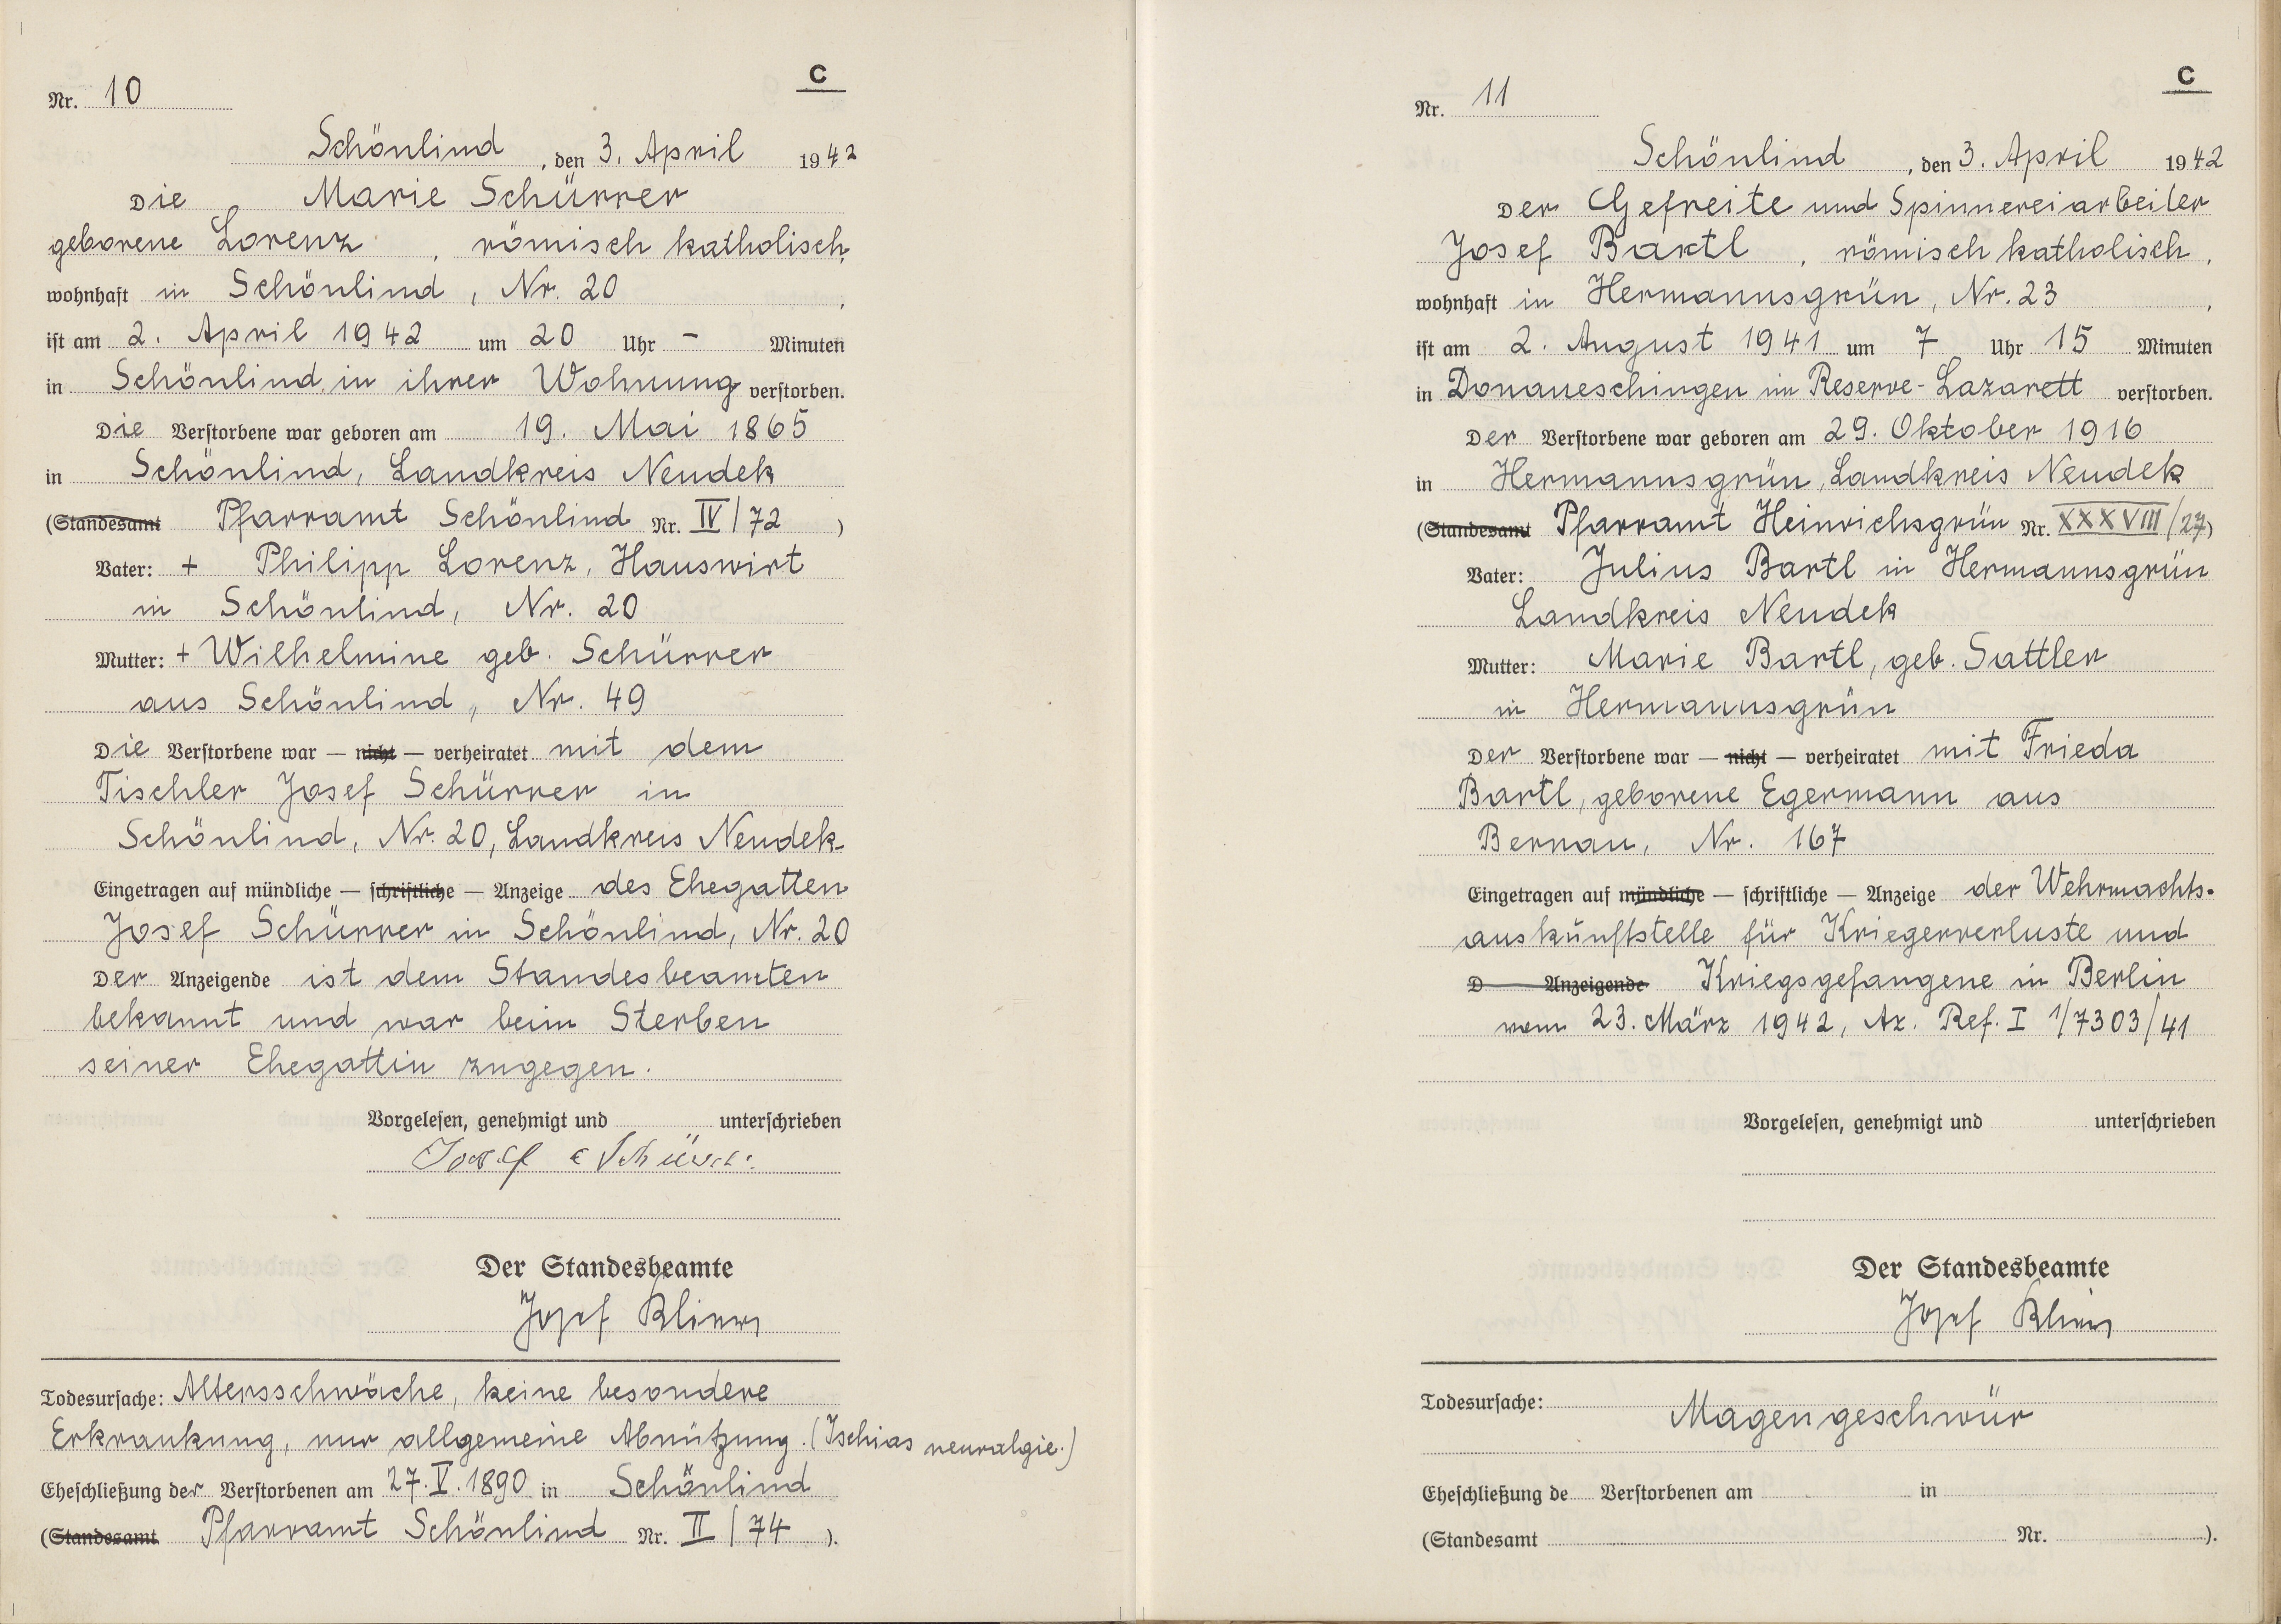 C
Nr. 10
Schönlind, den 3. April 1942
Die Marie Schürrer
geborene Lorenz, römisch katholisch,
wohnhaft in Schönlind, Nr. 20,
ist am 2. April 1942 um 20 Uhr - Minuten
in Schönlind, in ihrer Wohnung verstorben.
Die Verstorbene war geboren am 19. Mai 1865
in Schönlind, Landkreis Neudek
(Standesamt Pfarramt Schönlind Nr. IV/72)
Vater: + Philipp Lorenz, Hauswirt
in Schönlind, Nr. 20
Mutter: + Wilhelmine geb. Schürrer
aus Schönlind, Nr. 49
Die Verstorbene war — nicht — verheiratet mit dem
Tischler Josef Schürrer in
Schönlind, Nr. 20, Landkreis Neudek
Eingetragen auf mündliche — schriftliche — Anzeige des Ehegatten
Josef Schürrer in Schönlind, Nr. 20
Der Anzeigende ist dem Standesbeamten
bekannt und war beim Sterben
seiner Ehegattin zugegen.
Vorgelesen, genehmigt und unterschrieben
Josef
Der Standesbeamte
Josef
Todesursache: Altersschwäche, keine besondere
Erkrankung, nur allgemeine Abnützung. (Ischias neuralgie.)
Eheschließung der Verstorbenen am 27. V. 1890 in Schönlind
(Standesamt Pfarramt Schönlind Nr. II/74).
C
Nr. 11
Schönlind, den 3. April 1942
Der Gefreite und Spinnereiarbeiter
Josef Bartl, römisch katholisch,
wohnhaft in Hermannsgrün, Nr. 23,
ist am 2. August 1941 um 7 Uhr 15 Minuten
in Donaueschingen im Reserve-Lazarett verstorben.
Der Verstorbene war geboren am 29. Oktober 1916
in Hermannsgrün, Landkreis Neudek
(Standesamt Pfarramt Heinrichsgrün Nr. XXXVIII/27)
Vater: Julius Bartl in Hermannsgrün
Landkreis Neudek
Mutter: Marie Bartl, geb. Sattler
in Hermannsgrün
Der Verstorbene war — nicht — verheiratet mit Frieda
Bartl, geborene Egermann aus
Bernau, Nr. 167
Eingetragen auf mündliche — schriftliche — Anzeige der Wehrmachts-
auskunftstelle für Kriegerverluste und
D Anzeigende Kriegsgefangene in Berlin
vom 23. März 1942, Az. Ref. I 1/7303/41
Vorgelesen, genehmigt und unterschrieben
Der Standesbeamte
Josef
Todesursache:
Magengeschwür
Eheschließung de Verstorbenen am in
(Standesamt Nr. ).